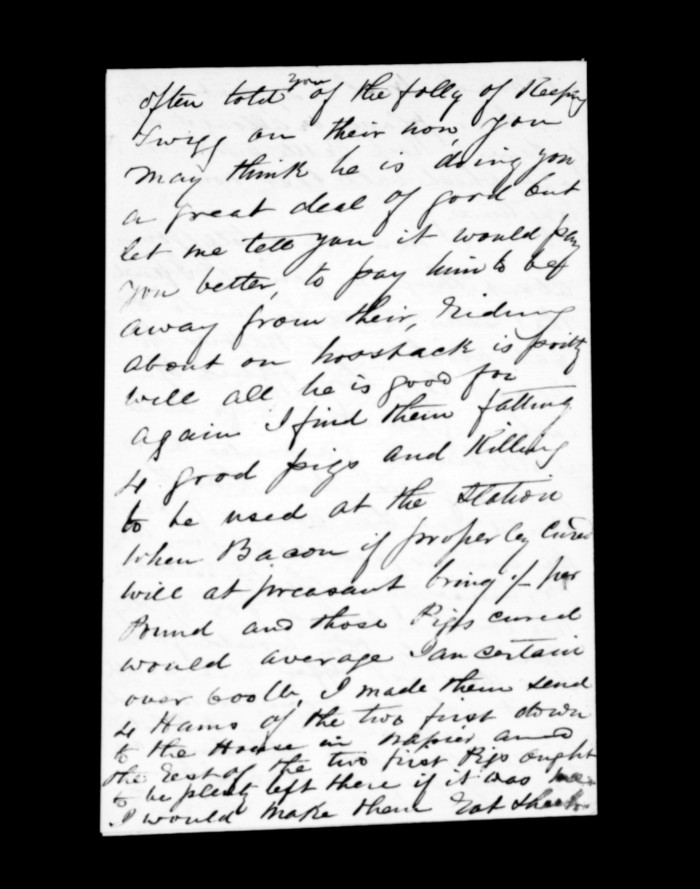 often told you of the folly of Keeping
Twigg on their now, you
may think he is doing you
a great deal of good but
let me tell you it would pay
you better, to pay him to be
away from their, Riding
about on hossback is pritty
well all he is good for
again I find them fatting
4 good pigs and Killing
to be used at the Station
when Bacon if properley cured
will at preasant bring 1/- per
Pound and those Pigs cured
would average I am certain
over 600 lb, I made them send
4 Hams of the two first down
to the House in Napier and
the Rest of the two first Pigs ought
to be plenty left there if it was me
I would make them Eat Sheep